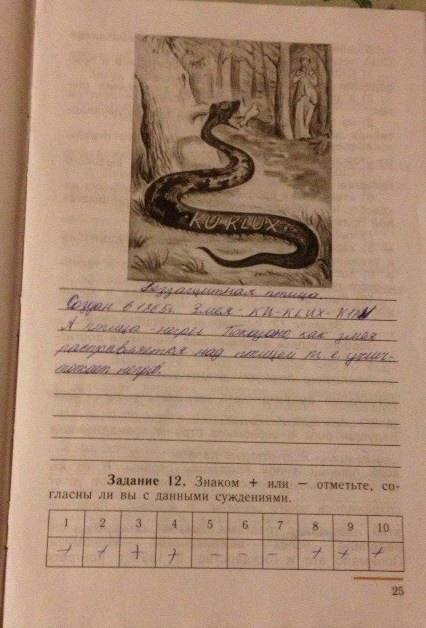 KU KLUX
Беззащитная птица.
Создан в 1865г. Змея - KU-KLUX-KLAN
А птица - негры. Показано как змея
расправляется над птицей т. е. унич-
тожает негров.
Задание 12. Знаком + или − отметьте, со-
гласны ли вы с данными суждениями.
1 2 3 4 5 6 7 8 9 10
+ + + + − − − + + +
25